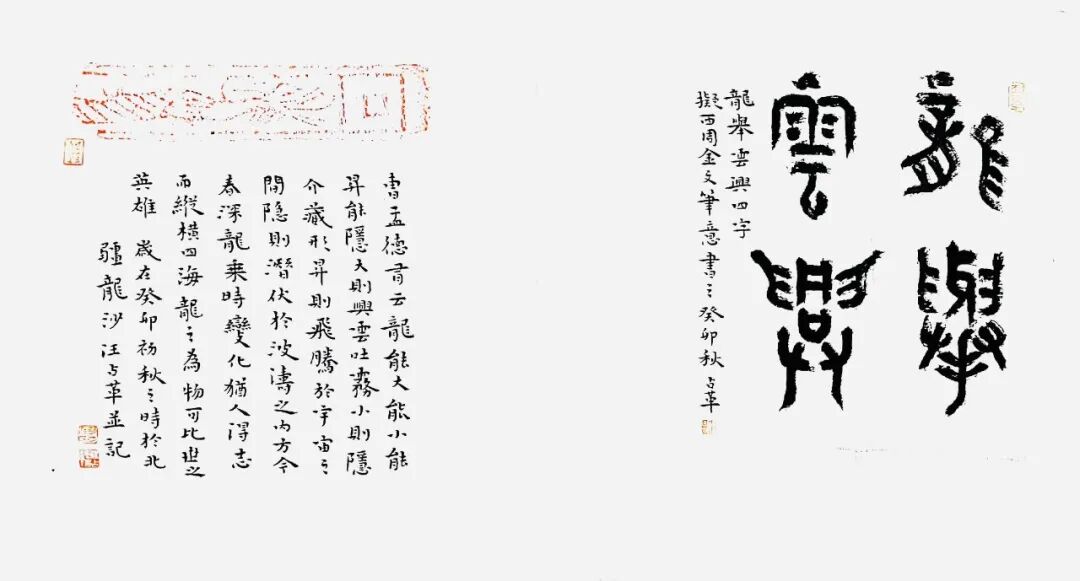 龍舉
雲興
龍舉雲興四字
擬西周金文筆意書之癸卯秋占革
曹孟德有云龍能大能小能
昇能隱大則興雲吐霧小則隱
介藏形昇則飛騰於宇宙之
間隐則潛伏於波濤之内方今
春深龍乗時變化猶人得志
而縱橫四海龍之為物可比世之
英雄 歲在癸卯初秋之時於北
疆龍沙汪占革並記